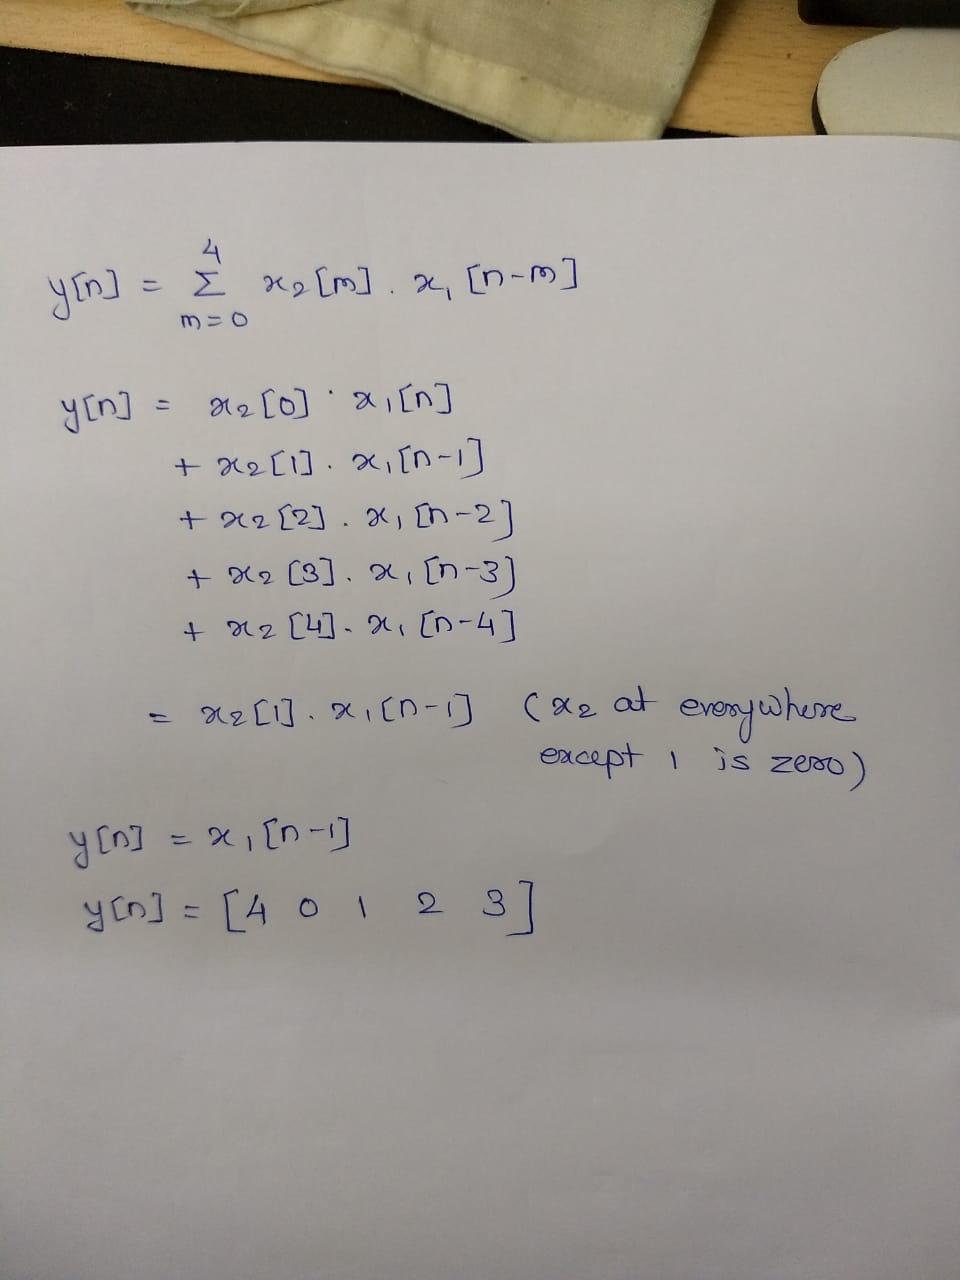 4
y[n] = Σ x₂[m] . x₁[n-m]
m=0
y[n] = x₂[0] · x₁[n]
+ x₂[1] . x₁[n-1]
+ x₂[2] . x₁[n-2]
+ x₂[3] . x₁[n-3]
+ x₂[4] . x₁[n-4]
= x₂[1] . x₁[n-1] (x₂ at everywhere
except 1 is zero)
y[n] = x₁[n-1]
y[n] = [4 0 1 2 3]